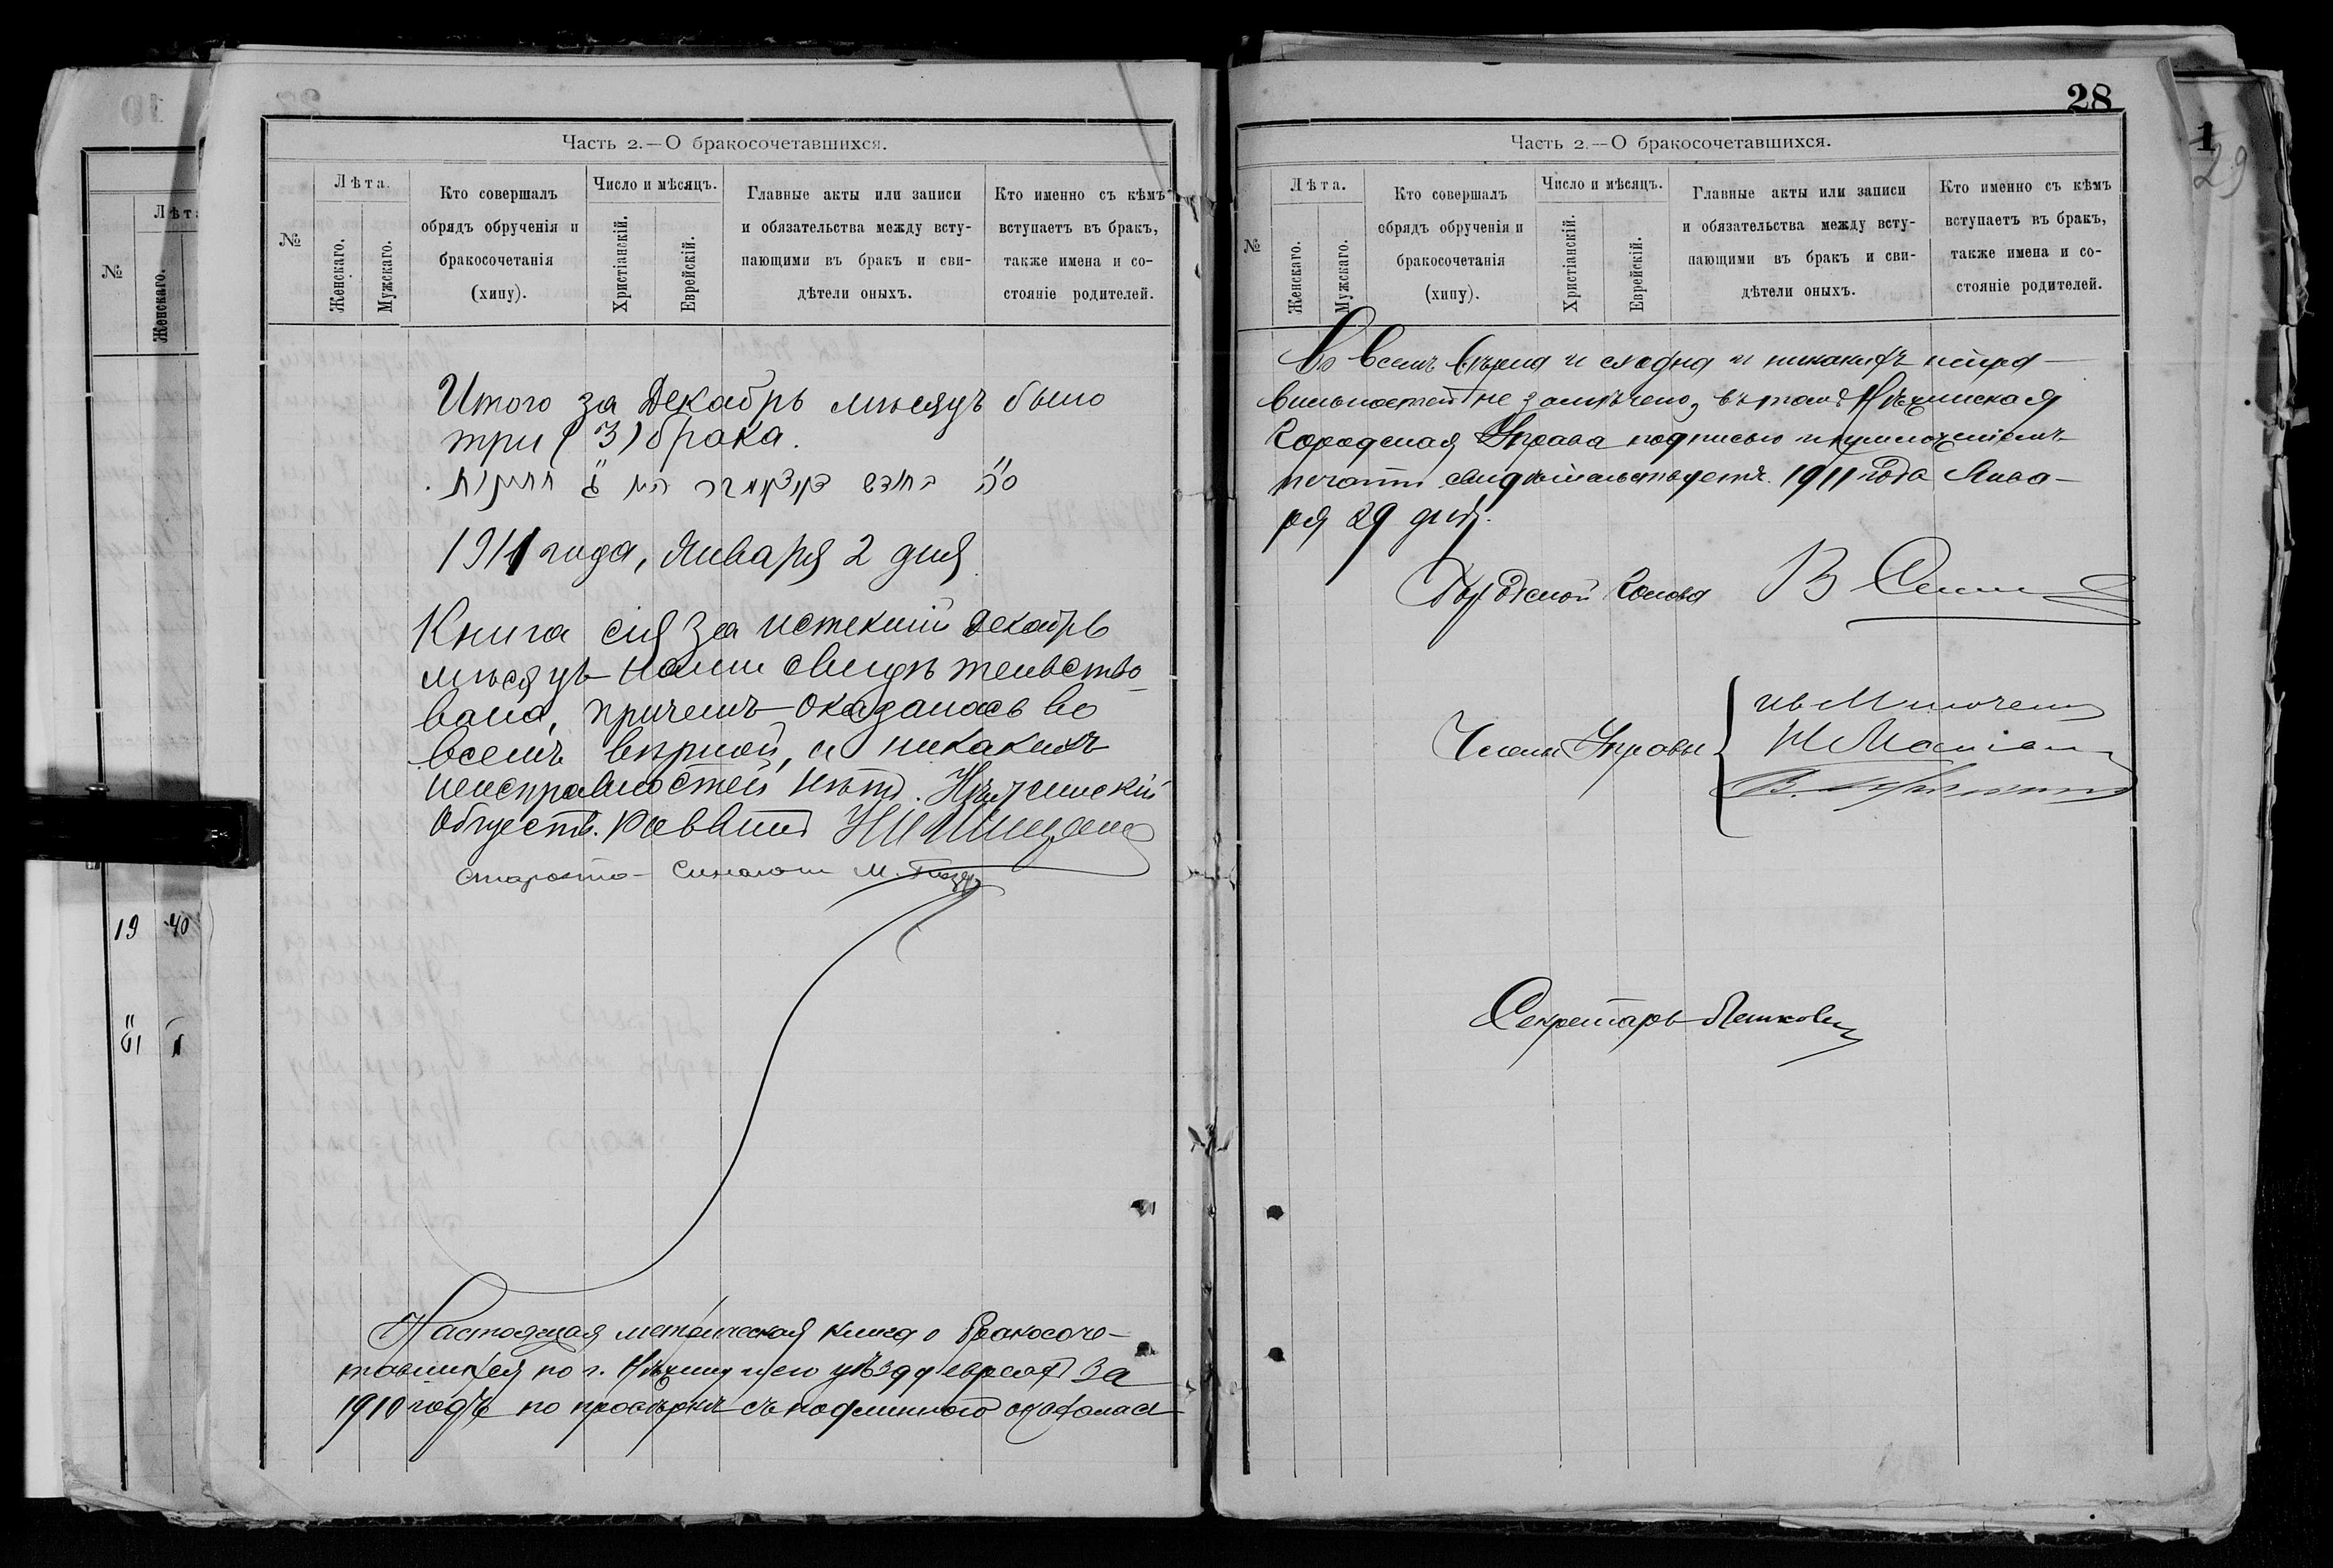 10
№
Лѣта
Женскаго.
19 40
Часть 2.—О бракосочетавшихся.
№
Лѣта.
Женскаго.
Мужскаго.
Кто совершалъ
обрядъ обрученія и
бракосочетанія
(хипу).
Число и мѣсяцъ.
Христіанскій.
Еврейскій.
Главные акты или записи
и обязательства между всту-
пающими въ бракъ и сви-
дѣтели оныхъ.
Кто именно съ кѣмъ
вступаетъ въ бракъ,
также имена и со-
стояніе родителей.
Итого за Декабрь мѣсяцъ было
три (3) брака.
1911 года, Января 2 дня
Книга сія за истекшій декабрь
мѣсяцъ нами свидѣтельство
вана, причемъ оказалась во
всемъ вѣрной, и никакихъ
неисправностей нѣтъ. Нѣжинскій
Обществ. Раввинъ
Староста М.
Настоящая метрическая книга о бракосоче-
тавшихся по г. Нѣжину и его уѣзду евреяхъ за
1910 годъ по провѣркѣ съ подлинною оказалась
28
Часть 2.—О бракосочетавшихся.
№
Лѣта.
Женскаго.
Мужскаго.
Кто совершалъ
обрядъ обрученія и
бракосочетанія
(хипу).
Число и мѣсяцъ.
Христіанскій.
Еврейскій.
Главные акты или записи
и обязательства между всту-
пающими въ бракъ и сви-
дѣтели оныхъ.
Кто именно съ кѣмъ
вступаетъ въ бракъ,
также имена и со-
стояніе родителей.
Во всемъ вѣрна и сходна и никакихъ непра-
вильностей не замѣчено, въ томъ Нѣжинская
Городская Управа подписью и приложеніемъ
печати свидѣтельствуетъ. 1911 года Янва-
ря 29 дня.
Городской Голова В
Члены Управы
Секретарь
1
29